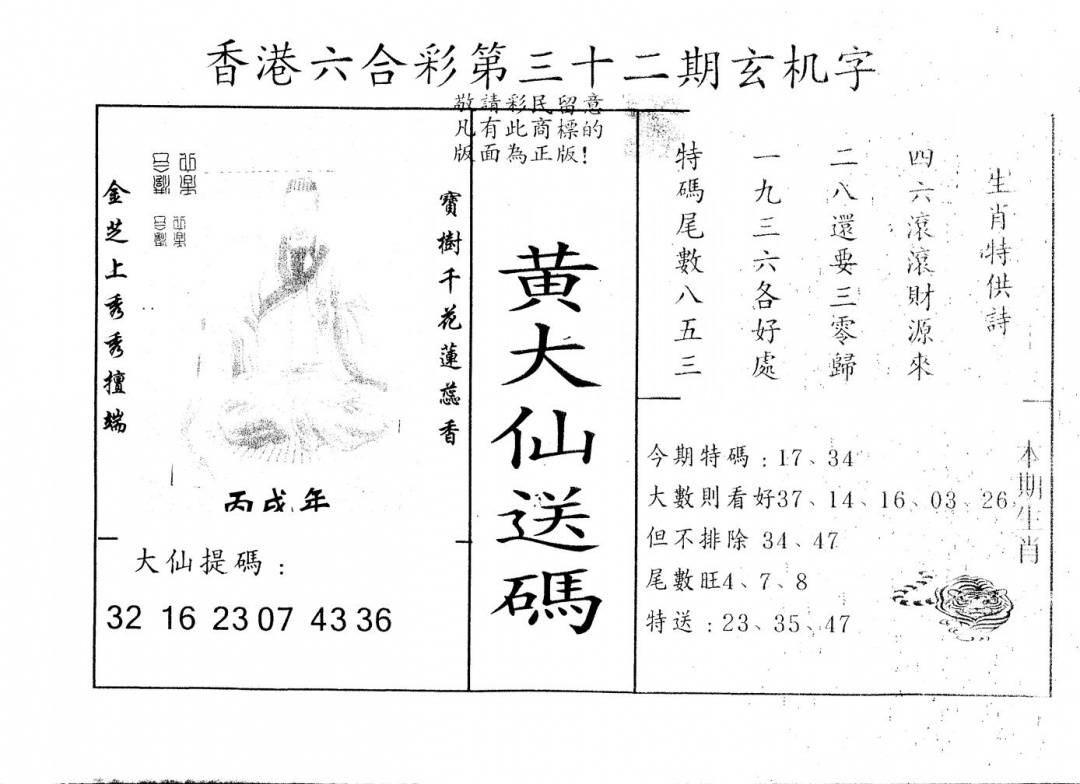 香港六合彩第三十二期玄机字
敬請彩民留意
凡有此商標的
版面為正版!
寶樹千花蓮蕊香
金芝上秀秀擅端
丙戌年
大仙提碼：
32 16 23 07 43 36
黄大仙送碼
生肖特供詩
四六滾滾財源來
二八還要三零歸
一九三六各好處
特碼尾數八五三
今期特碼：17、34
大數則看好37、14、16、03、26
但不排除 34、47
尾數旺4、7、8
特送：23、35、47
本期生肖